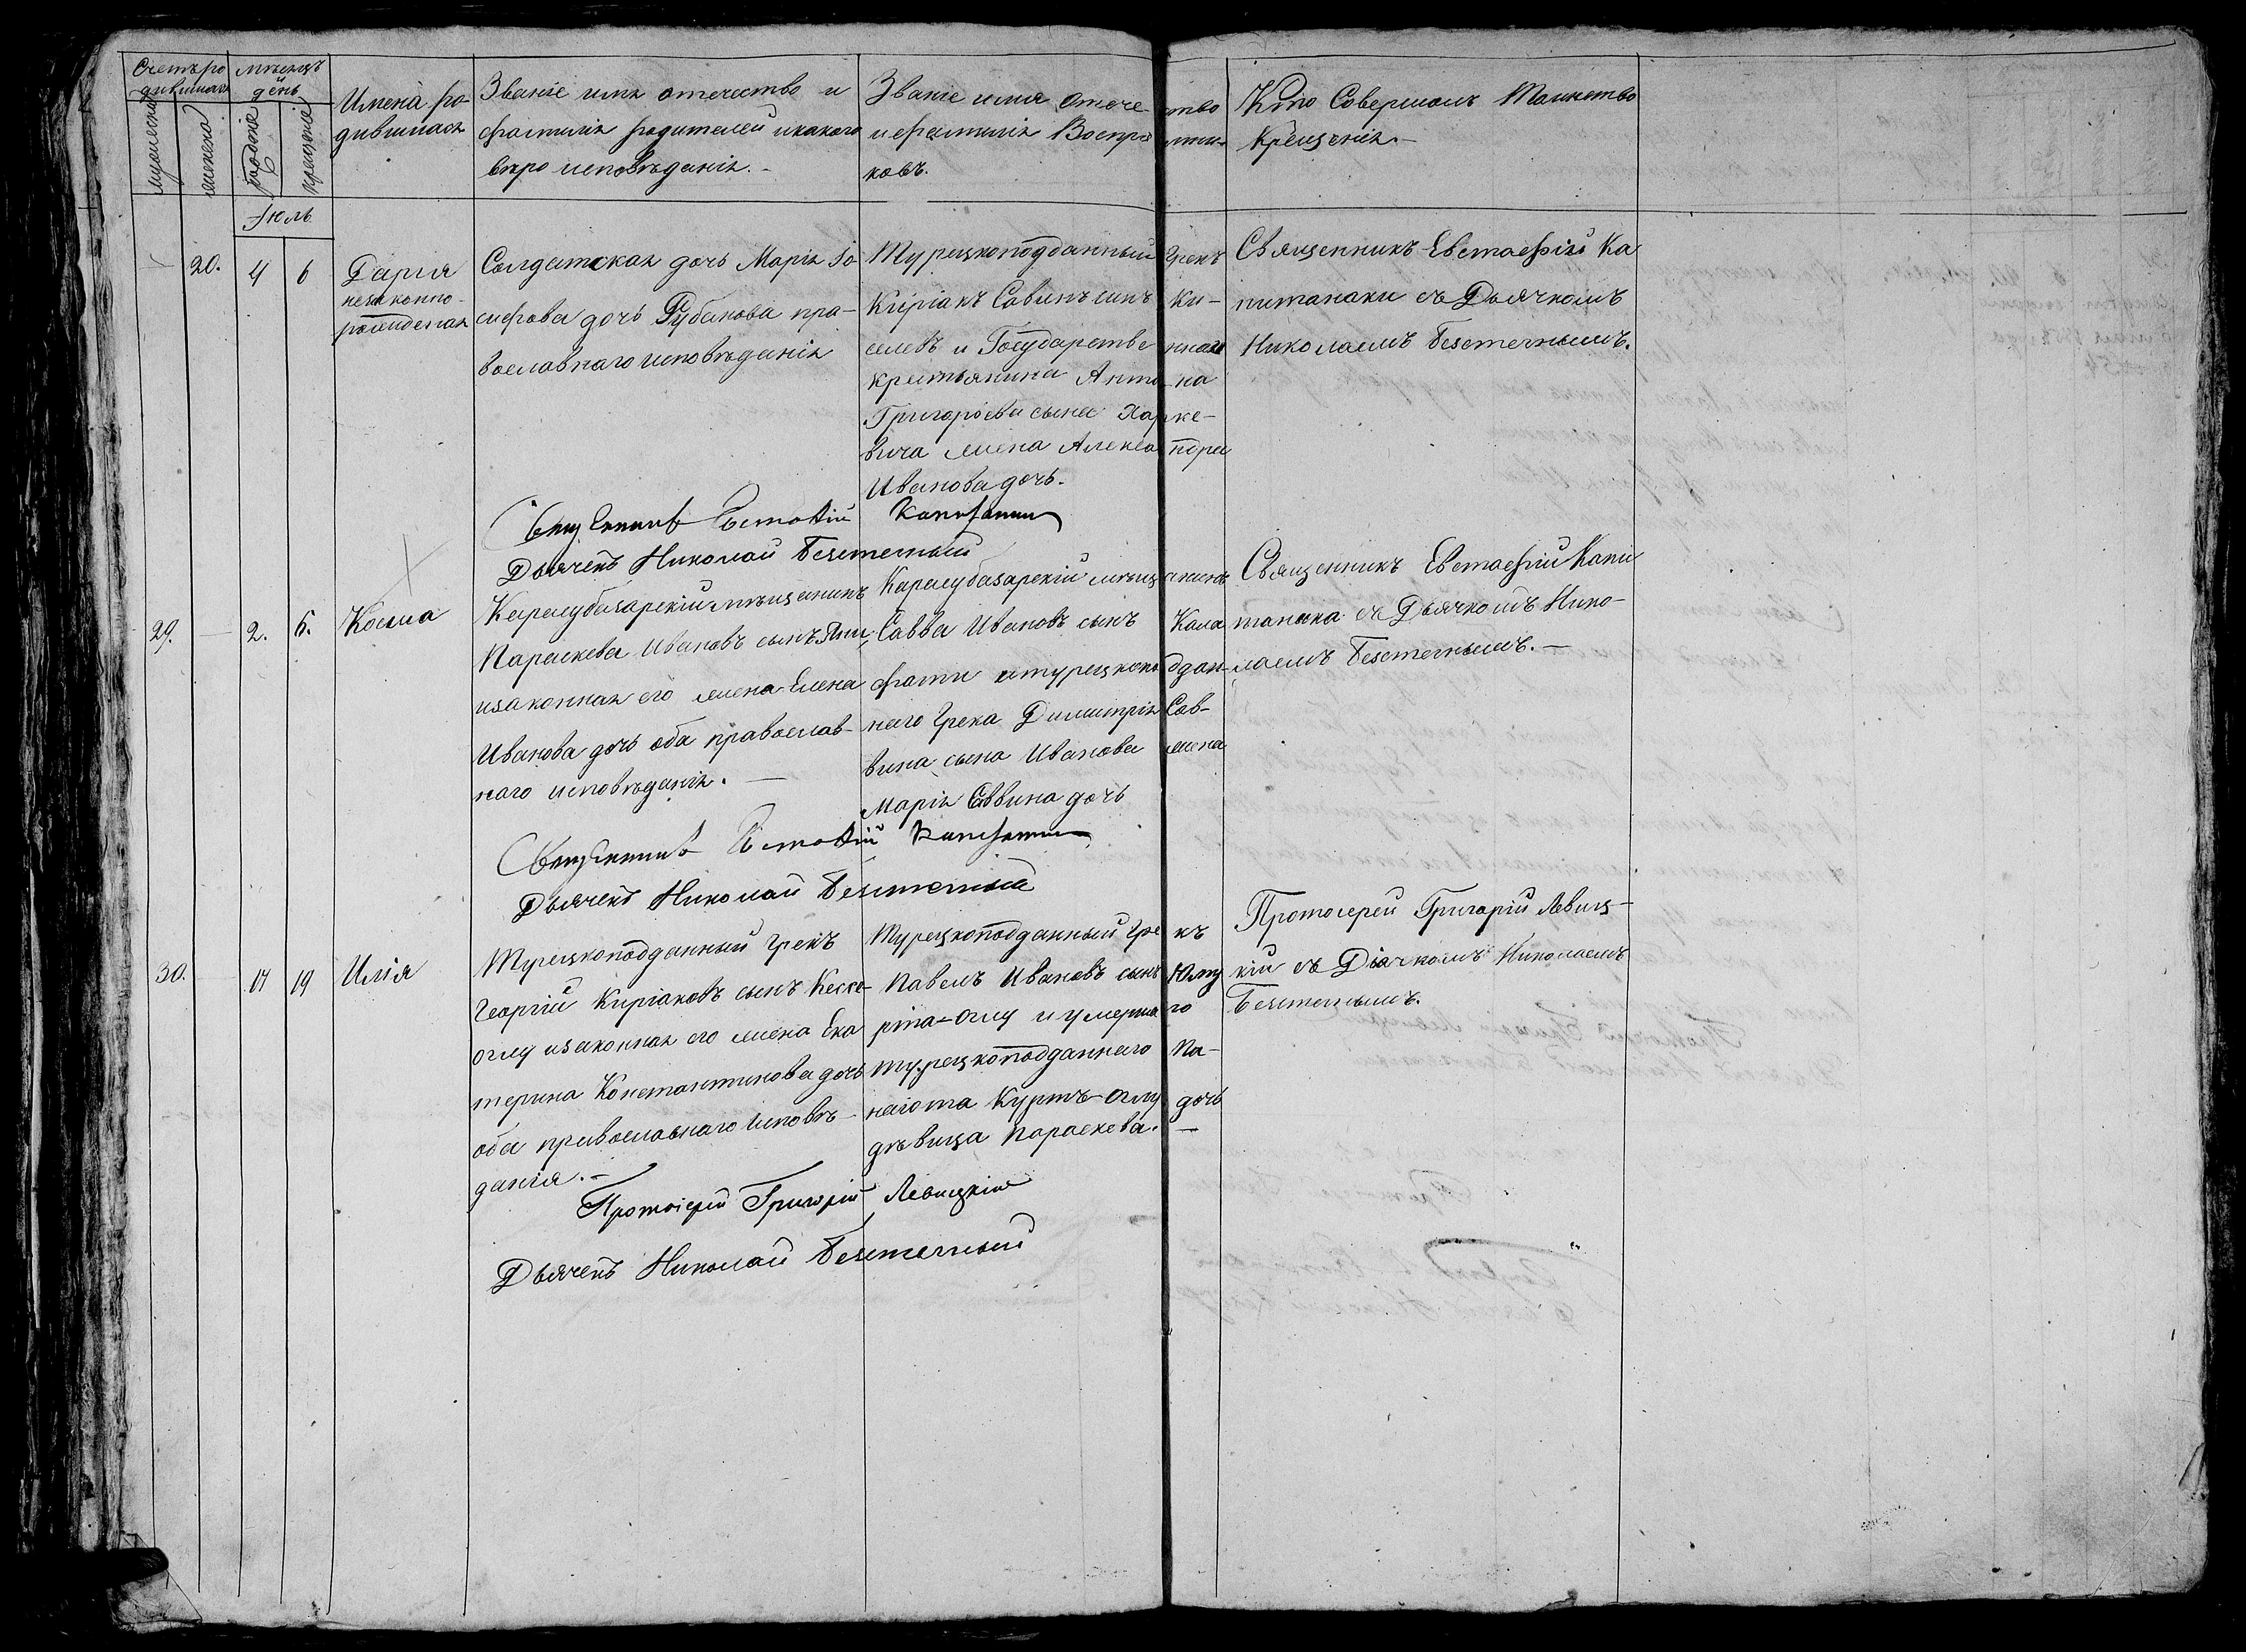 Счетъ ро
дившихся
мужеска
женска
Мѣсяцъ
день
рожденіе
крещеніе
Имена ро-
дившихся
Званіе имя отечество и
фамилія родителей и какого
вѣро исповѣданія.-
Званіе имя отечество
и фамилія Воспріемни-
ковъ.
Кто Совершалъ Таинство
Крещенія.-
Іюль
20.
4
6
Дарія
незаконно-
рожденная
Солдатская дочь Марія Іо
сифова дочь Рубанова пра-
вославнаго исповѣданія
Турецкоподданный Грекъ
Киріакъ Савинъ сынъ Ки-
селевъ и Государственнаго
крестьянина Антина
Григорьева сына Харке-
вича жена Александра
Иванова дочь.
Священникъ Евстаѳій Ка
питанаки съ Дьячкомъ
Николаемъ Безтечнымъ.
Священникъ Евстаѳій
Дьячекъ Николай Безтечный
29.
2.
6.
Косма
Карасубазарскій мѣщанинъ
Параскева Ивановъ сынъ
и законная его жена Елена
Иванова дочь оба православ-
наго исповѣданія.
Карасубазарскій мѣщанинъ
Савва Ивановъ сынъ Кала
фати и турецкоподдан-
наго Грека Димитрія Сав-
вина сына Иванова жена
Марія Саввина дочь
Священникъ Евстафій Капи
танака съ Дьячкомъ Нико-
лаемъ Безтечнымъ.-
Священникъ Евстаѳій
Дьячекъ Николай Безтечный
30.
17
19
Илія
Турецкоподданный Грекъ
Георгій Киріаковъ сынъ Кессе-
оглу и законная его жена Ека
терина Константинова дочь
оба православнаго исповѣ-
данія.-
Турецкоподданный Грекъ
Павелъ Ивановъ сынъ Юму
рта-Оглу и умершаго
турецкоподданнаго Па-
наіота Куртъ-Оглу дочь
дѣвица Параскева.-
Протоіерей Григорій Левиц-
кій съ Діачкомъ Николаемъ
Безтечнымъ.
Протоіерей Григорій Левицкій
Дьячекъ Николай Безтечный